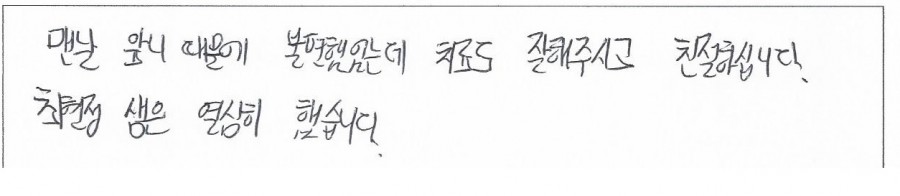 맨날 앞니 때문에 불편했었는데 치료도 잘해주시고 친절하십니다.
최현정 샘은 열심히 했습니다.